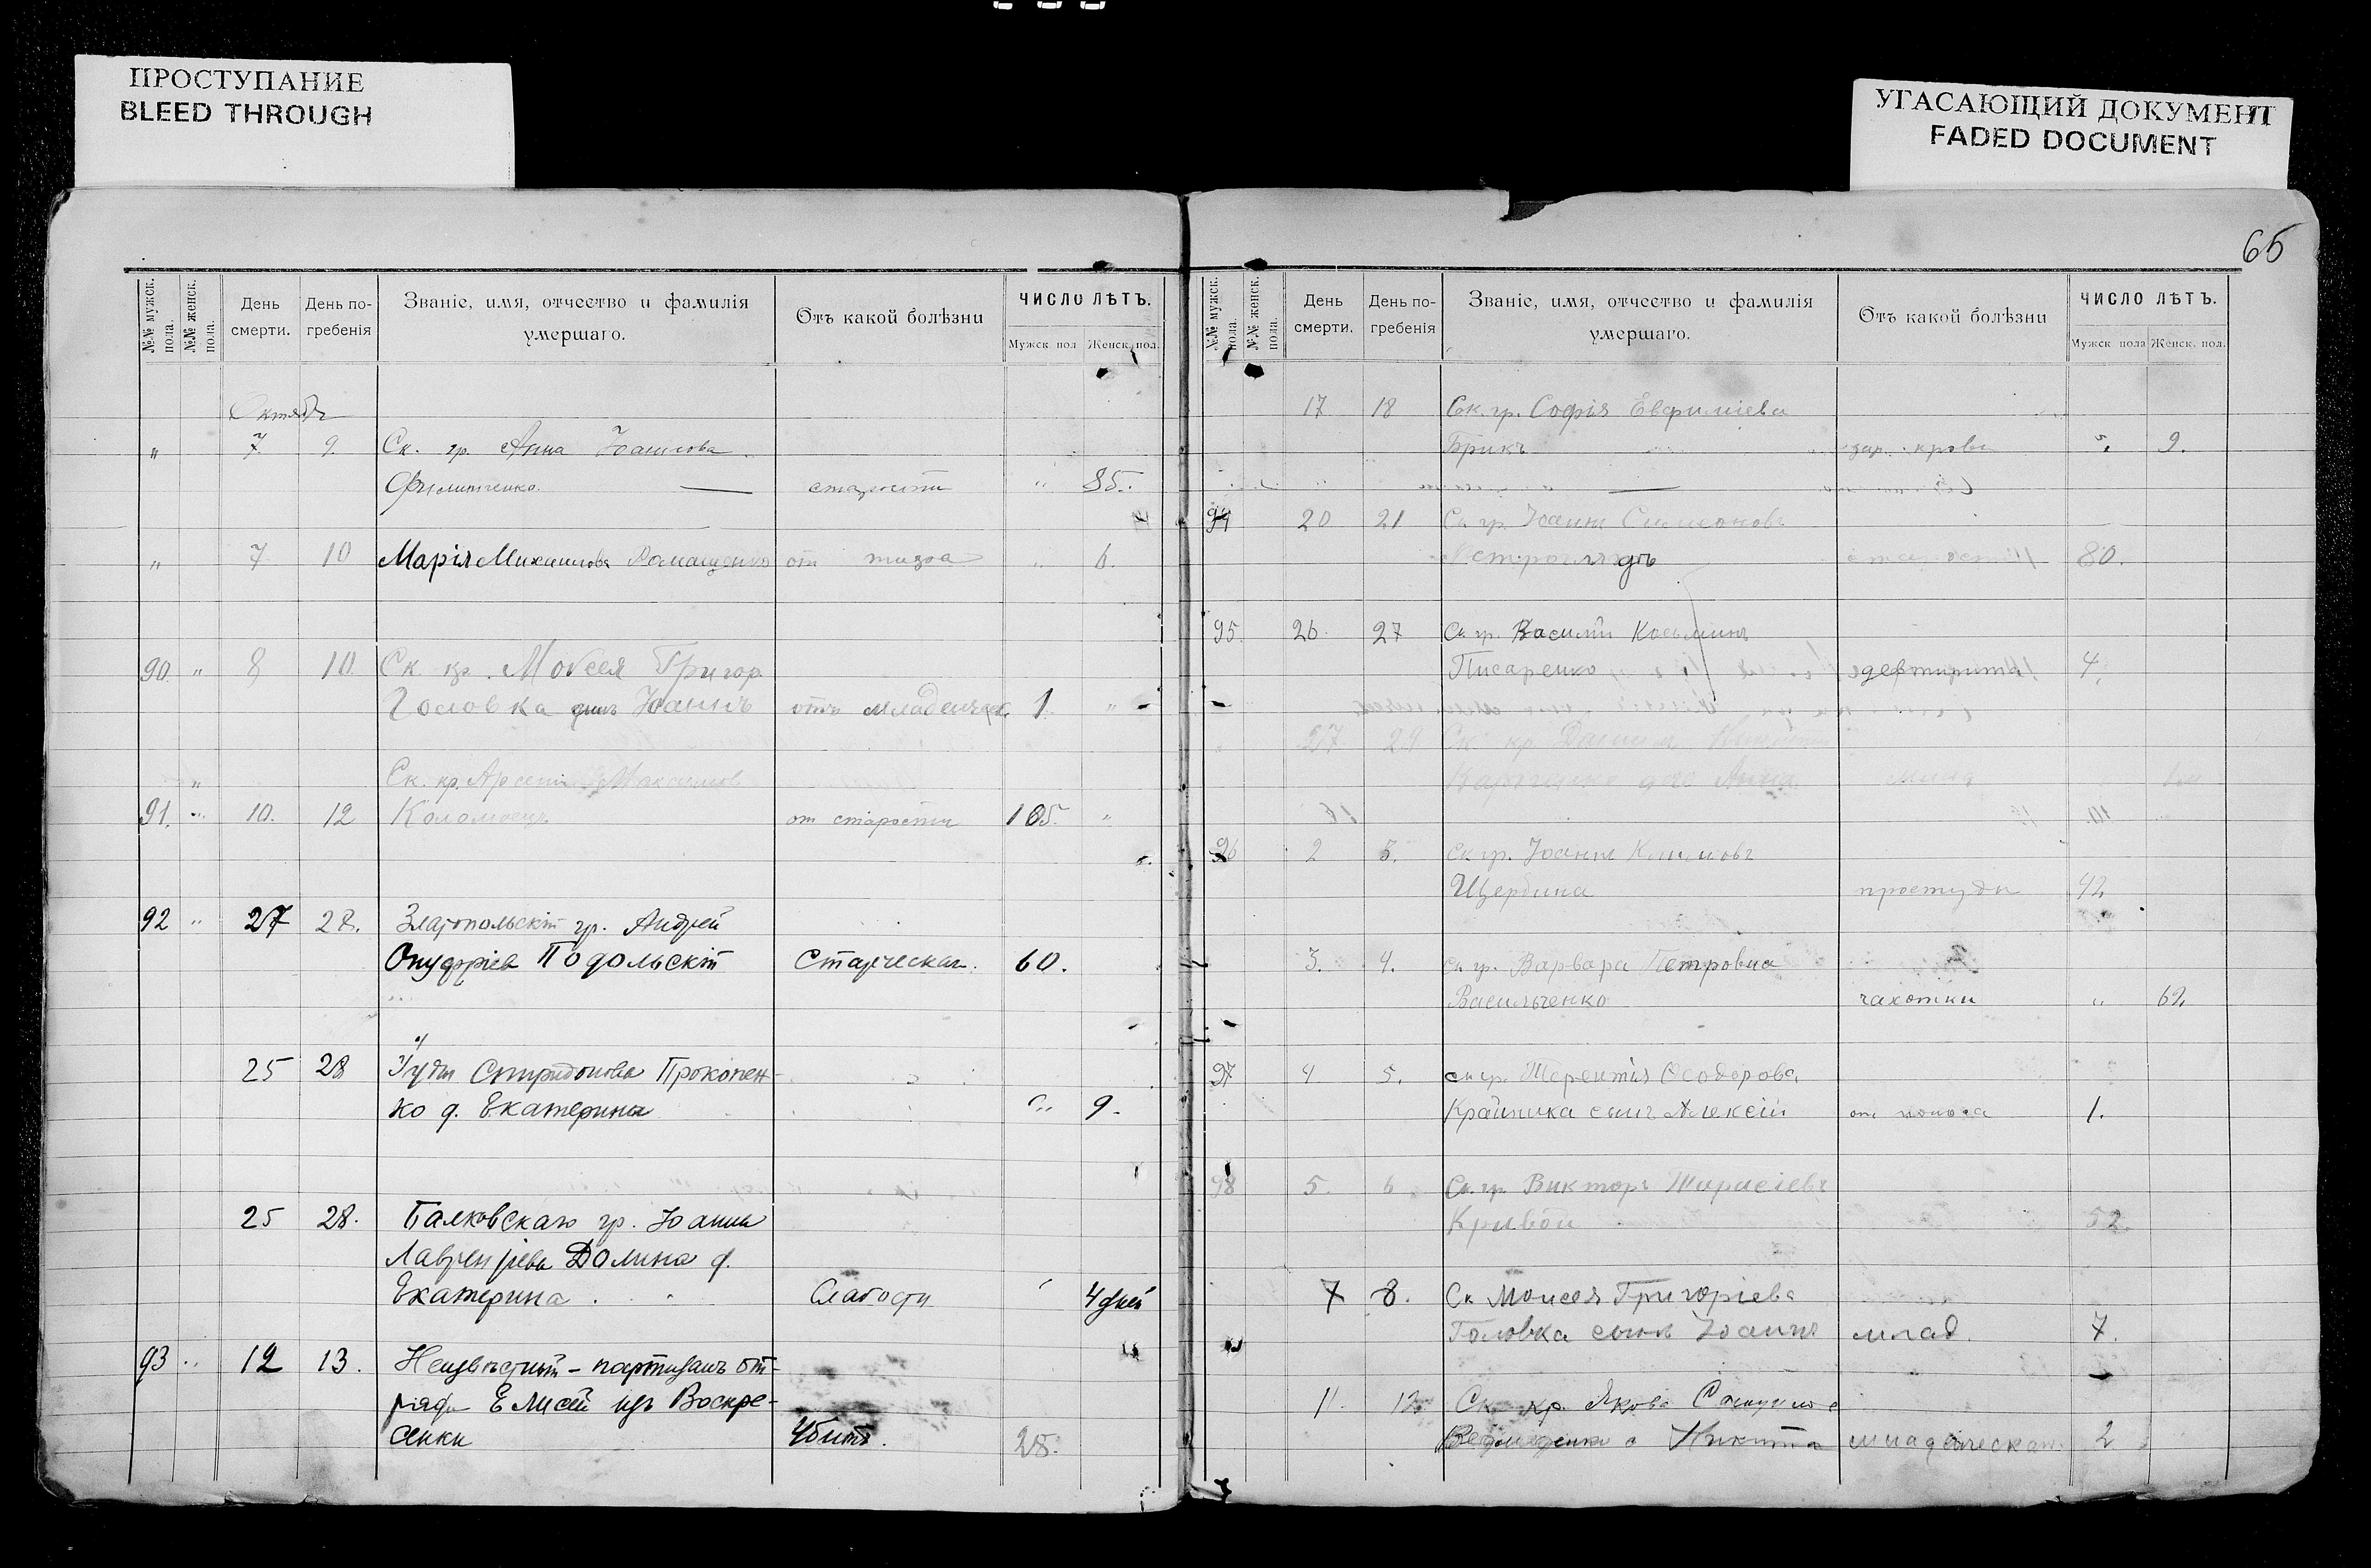 ПРОСТУПАНИЕ
BLEED THROUGH
УГАСАЮЩИЙ ДОКУМЕНТ
FADED DOCUMENT
65
№№ мужск. пола.
№№ женск. пола.
День смерти.
День по-гребенія
Званіе, имя, отчество и фамилія
умершаго.
Отъ какой болѣзни
ЧИСЛО ЛѢТЪ.
Мужск. пол Женск. пол.
Октябр
" 7 9. Ск. гр. Анна
Филипченко. — старости " 85.
" 7 10 Марія Михаилова Ромащенко от тифа " 6.
90. " 8 10. Ск. кр. Моѵсея Григор.
Головка сынъ Іоаннъ отъ младенческ. 1 "
" Ск. кр. Арсеній Максимов
91. " 10. 12 Коломоецъ от старости 105. "
92 " 27 28. Златопольскій гр. Андрей
Онуфріев Подольскій Старческая. 60.
25 28 Іуды Спиридонова Прокопен-
ко д. Екатерина " 9.
25 28. Балковскаго гр. Іоанна
Лаврентіева Долина д.
Екатерина Слабости 4 дней
93 " 12 13. Неизвѣстный - партизанъ от-
ряда Елисей изъ Воскре-
сенки Убитъ. 25.
№№ мужск. пола.
№№ женск. пола.
День смерти.
День по-гребенія
Званіе, имя, отчество и фамилія
умершаго.
Отъ какой болѣзни
ЧИСЛО ЛѢТЪ.
Мужск. пола Женск. пол.
17 18 Ск. гр. Софія Евфиміева
Брикъ зар. крови " 9.
94 20 21 Ск. гр. Іоаннъ Симеоновъ
старости 80.
95. 26. 27 Ск. гр. Василій Косьминъ
Писаренко дефтирита 4.
27 29 Ск. кр.
дое Анна
96 2 3. Ск. гр. Іоаннъ Климовъ
Щербина простуды 42
3. 4. Ск. гр. Варвара Петровна
Васильченко чахотки " 62.
97 4 5. Ск. гр. Терентія Ѳеодорова
Крайника сынъ Алексій от поноса 1.
98 5. 6 Ск. гр. Викторъ Тарасіевъ
Кривой 52.
7 8. Ск Моисея Григоріева
Головка сынъ Іоаннъ млад. 7.
11. 12. Ск. кр. Якова
с Никита младенческая. 2